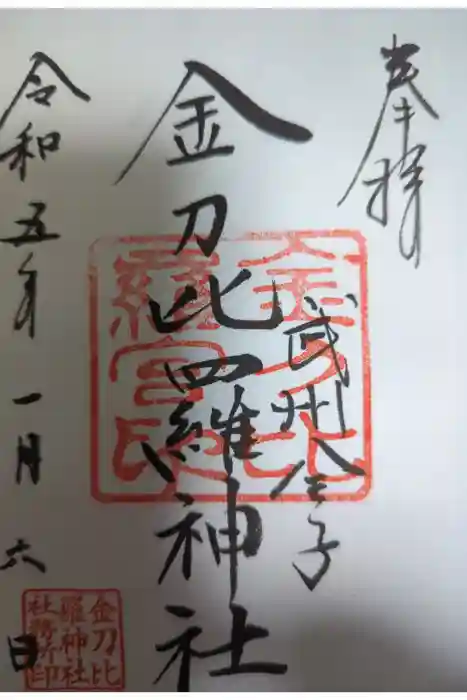 奉拝
武州八王子
金刀比羅神社
令和五年一月六日
金刀比
羅宮印
金刀比
羅神社
社務所印